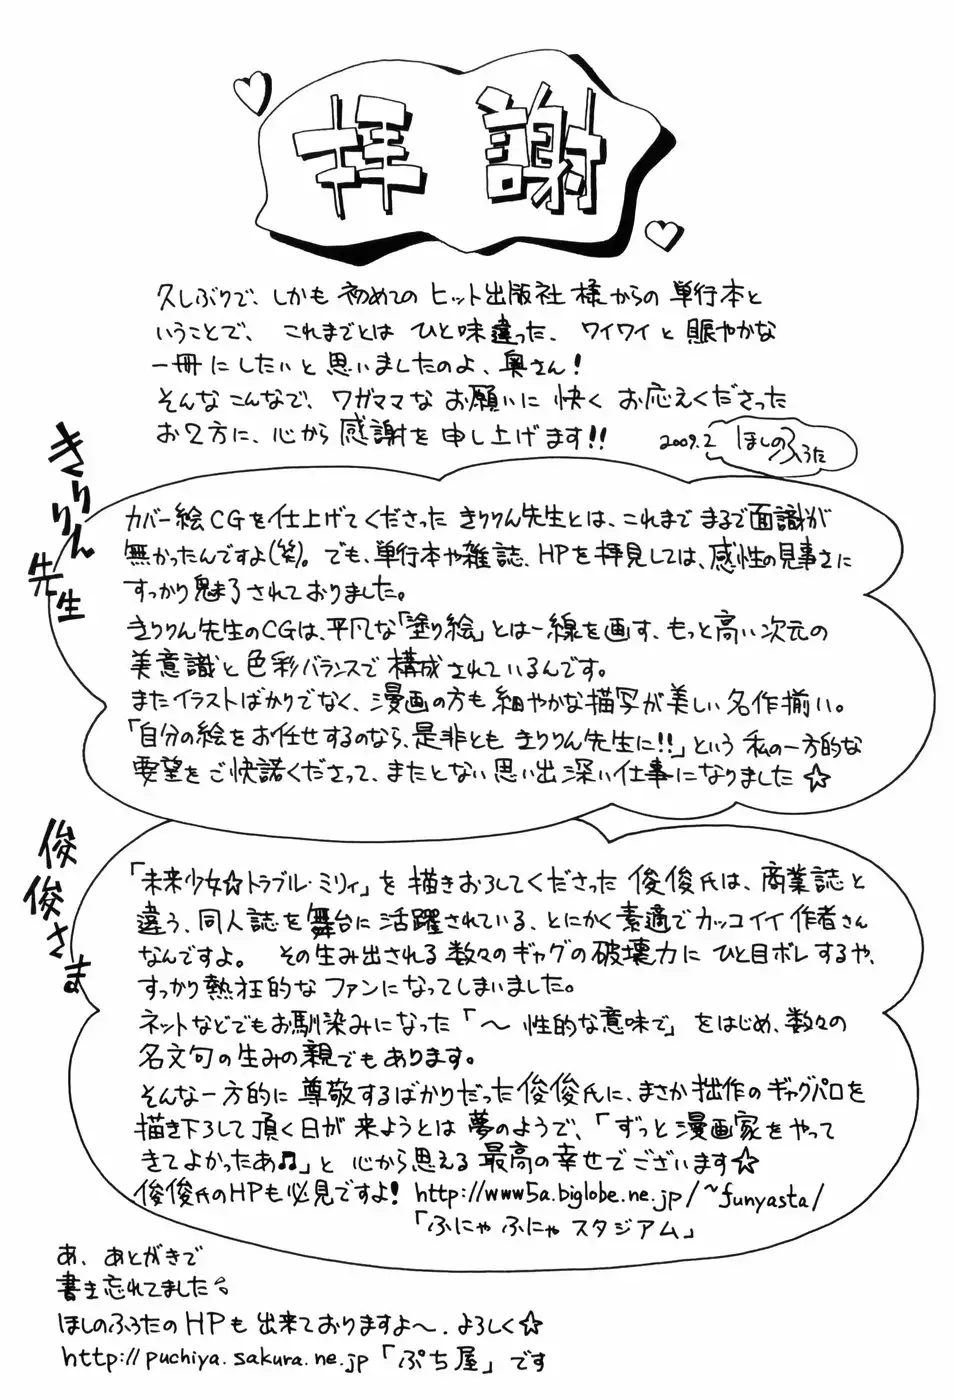 拝謝
久しぶりで、しかも初めてのヒット出版社様からの単行本と
いうことで、これまでとはひと味違った、ワイワイと賑やかな
一冊にしたいと思いましたのよ、奥さん!
そんなこんなで、ワガママなお願いに快くお応えくださった
お2方に、心から感謝を申し上げます!!
2009.2 ほしのふうた
きりりん先生
カバー絵CGを仕上げてくださったきりりん先生とは、これまでまるで面識が
無かったんですよ(笑)。でも、単行本や雑誌、HPを拝見しては、感性の見事さに
すっかり魅了されておりました。
きりりん先生のCGは、平凡な「塗り絵」とは一線を画す、もっと高い次元の
美意識と色彩バランスで構成されているんです。
またイラストばかりでなく、漫画の方も細やかな描写が美しい名作揃い。
「自分の絵をお任せするのなら、是非ともきりりん先生に!!」という私の一方的な
要望をご快諾くださって、またとない思い出深い仕事になりました☆
俊俊さま
「未来少女☆トラブル・ミリィ」を描きおろしてくださった俊俊氏は、商業誌と
違う、同人誌を舞台に活躍されている、とにかく素適でカッコイイ作者さん
なんですよ。その生み出される数々のギャグの破壊力にひと目ボレするや、
すっかり熱狂的なファンになってしまいました。
ネットなどでもお馴染みになった「〜性的な意味で」をはじめ、数々の
名文句の生みの親でもあります。
そんな一方的に尊敬するばかりだった俊俊氏に、まさか拙作のギャグパロを
描き下ろして頂く日が来ようとは夢のようで、「ずっと漫画家をやって
きてよかったあ♫」と心から思える最高の幸せでございます☆
俊俊氏のHPも必見ですよ! http://www5a.biglobe.ne.jp/~funyasta/
「ふにゃふにゃスタジアム」
あ、あとがきで
書き忘れてました。
ほしのふうたのHPも出来ておりますよ〜。よろしく☆
http://puchiya.sakura.ne.jp「ぷち屋」です